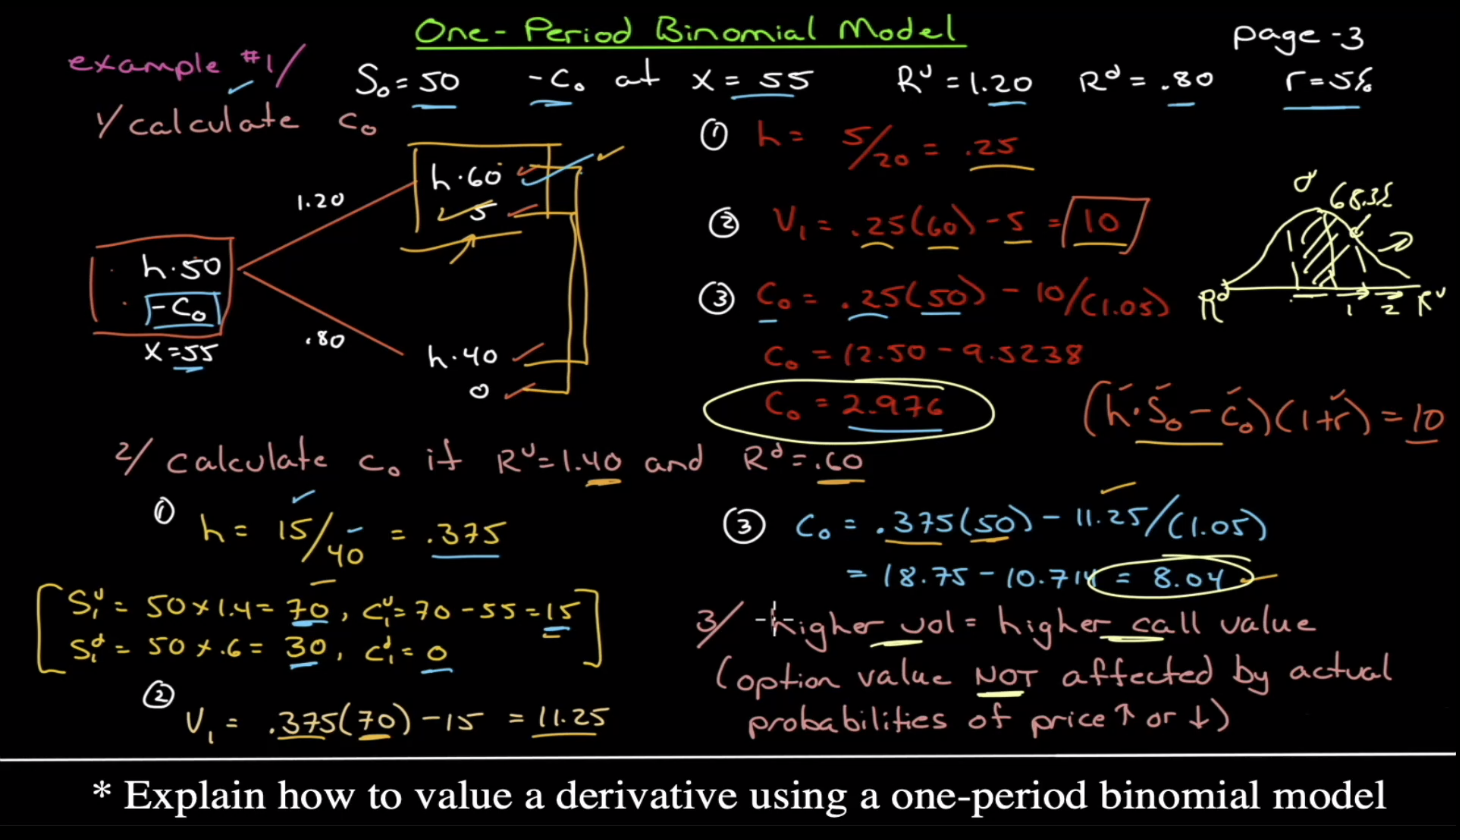 One-Period Binomial Model
page-3
example #1/
S₀ = 50 -C₀ at X = 55 Rᵘ = 1.20 Rᵈ = .80 r = 5%
1/ calculate C₀
1.20
h·60
5
h·50
-C₀
X = 55
.80
h·40
0
① h = 5/20 = .25
② V₁ = .25(60) - 5 = 10
③ C₀ = .25(50) - 10/(1.05)
C₀ = 12.50 - 9.5238
C₀ = 2.976
σ
68.3%
Rᵈ 1 2 Rᵘ
(h·S₀ - C₀)(1+r) = 10
2/ calculate C₀ if Rᵘ = 1.40 and Rᵈ = .60
① h = 15/40 = .375
S₁ᵘ = 50 x 1.4 = 70, C₁ᵘ = 70 - 55 = 15
S₁ᵈ = 50 x .6 = 30, C₁ᵈ = 0
② V₁ = .375(70) - 15 = 11.25
③ C₀ = .375(50) - 11.25/(1.05)
= 18.75 - 10.714 = 8.04
3/ -higher vol = higher call value
(option value NOT affected by actual
probabilities of price ↑ or ↓)
* Explain how to value a derivative using a one-period binomial model